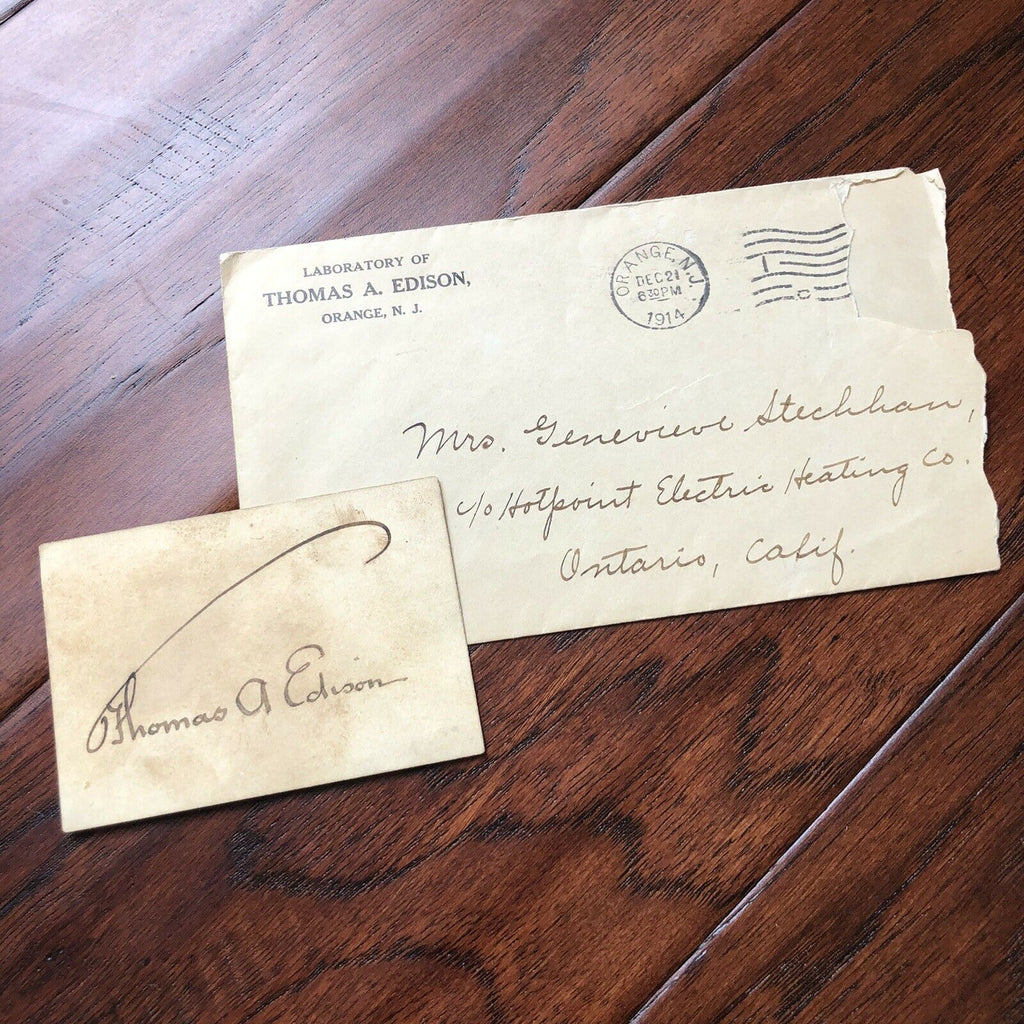 LABORATORY OF
THOMAS A. EDISON,
ORANGE, N. J.
ORANGE, N.J.
DEC 21
6 30 PM
1914
Mrs. Genevieve Steckhan,
c/o Hotpoint Electric Heating Co.
Ontario, Calif.
Thomas A Edison